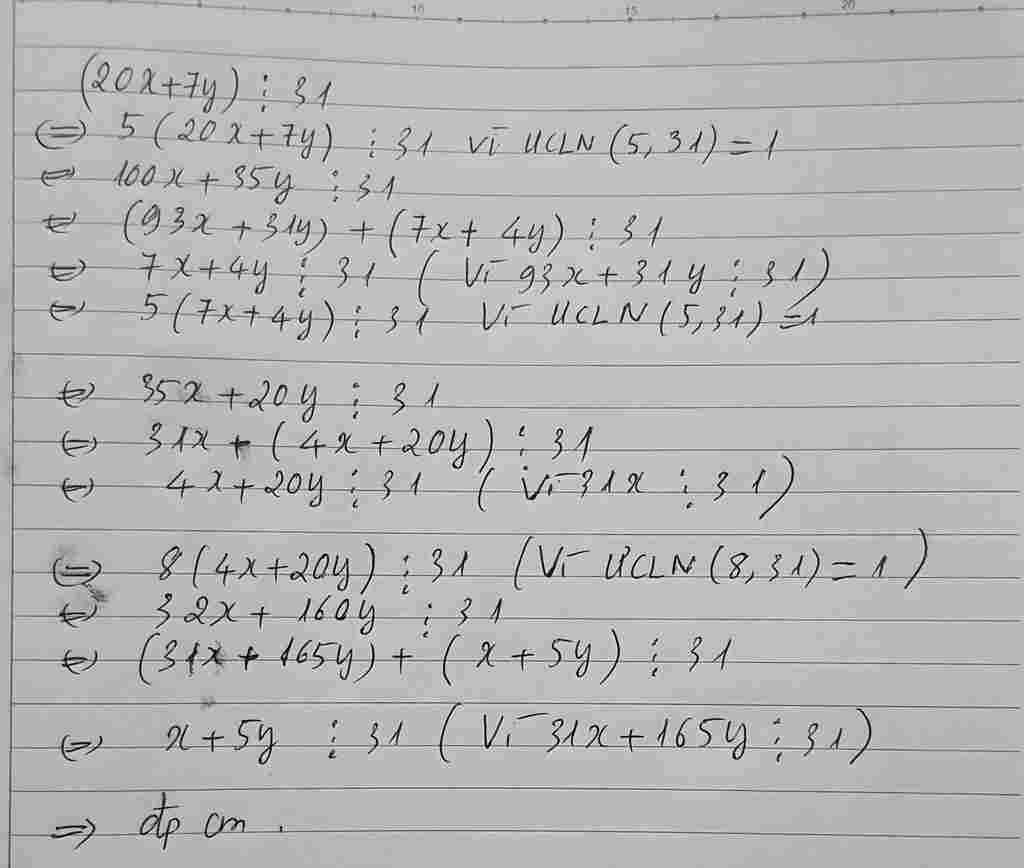 10 15 20
(20x+7y) ⋮ 31
⇔ 5(20x+7y) ⋮ 31 vì UCLN(5,31)=1
⇔ 100x+35y ⋮ 31
⇔ (93x+31y)+(7x+4y) ⋮ 31
⇔ 7x+4y ⋮ 31 (Vì 93x+31y ⋮ 31)
⇔ 5(7x+4y) ⋮ 31 Vì UCLN(5,31)=1
⇔ 35x+20y ⋮ 31
⇔ 31x+(4x+20y) ⋮ 31
⇔ 4x+20y ⋮ 31 (Vì 31x ⋮ 31)
⇔ 8(4x+20y) ⋮ 31 (Vì ƯCLN(8,31)=1)
⇔ 32x+160y ⋮ 31
⇔ (31x+165y)+(x+5y) ⋮ 31
⇔ x+5y ⋮ 31 (Vì 31x+165y ⋮ 31)
⇒ đpcm.